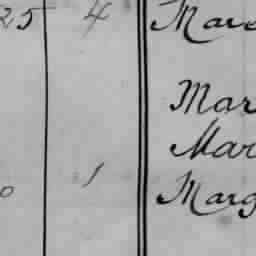 25 4 Mare
Mar
Mar
0 1 Marg